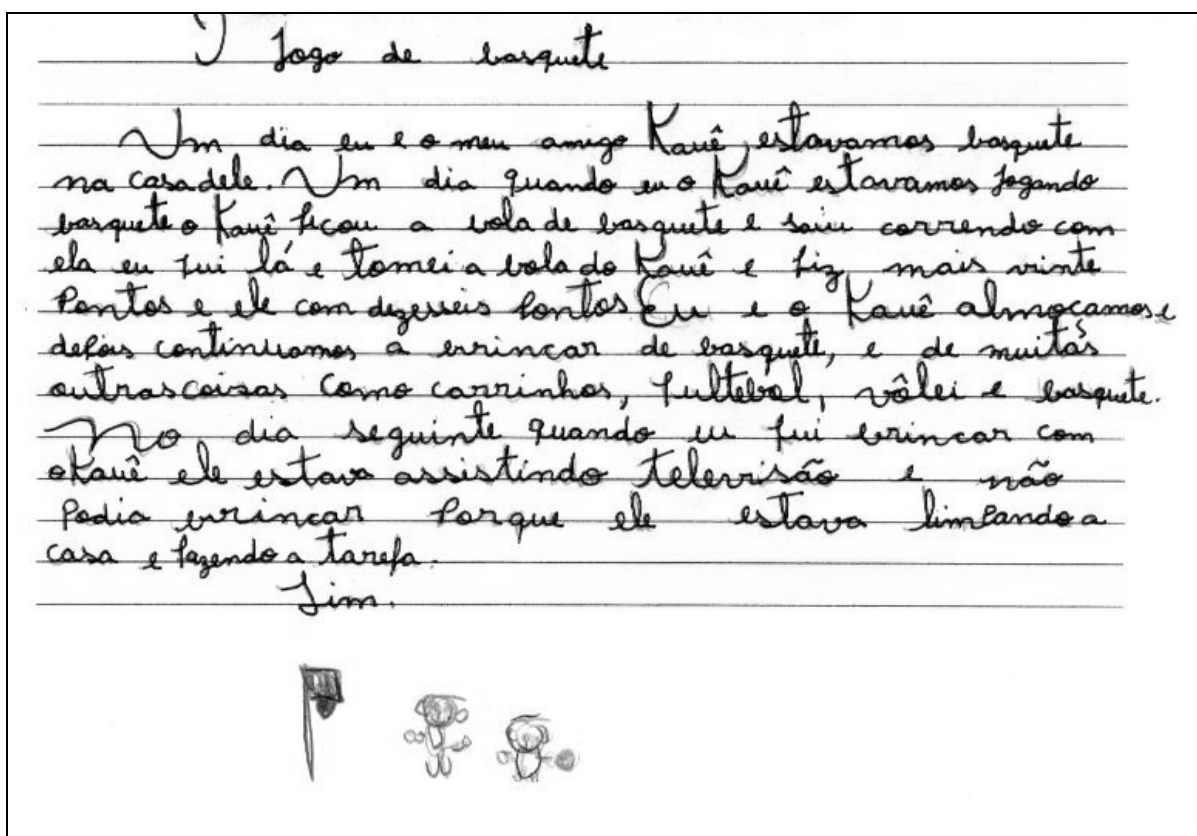 Jogo de basquete
Um dia eu e o meu amigo Kauê, estavamos basquete
na casa dele. Um dia quando eu o Kauê estavamos jogando
basquete o Kauê ficou a bola de basquete e saiu correndo com
ela eu fui lá e tomei a bola do Kauê e fiz mais vinte
Pontos e ele com dezesseis Pontos Eu e o Kauê almoçamos e
depois continuamos a brincar de basquete, e de muitas
outras coisas como carrinhos, fultebol, vôlei e basquete.
No dia seguinte quando eu fui brincar com
o Kauê ele estava assistindo televisão e não
Podia brincar Porque ele estava limpando a
casa e fazendo a tarefa.
Fim.